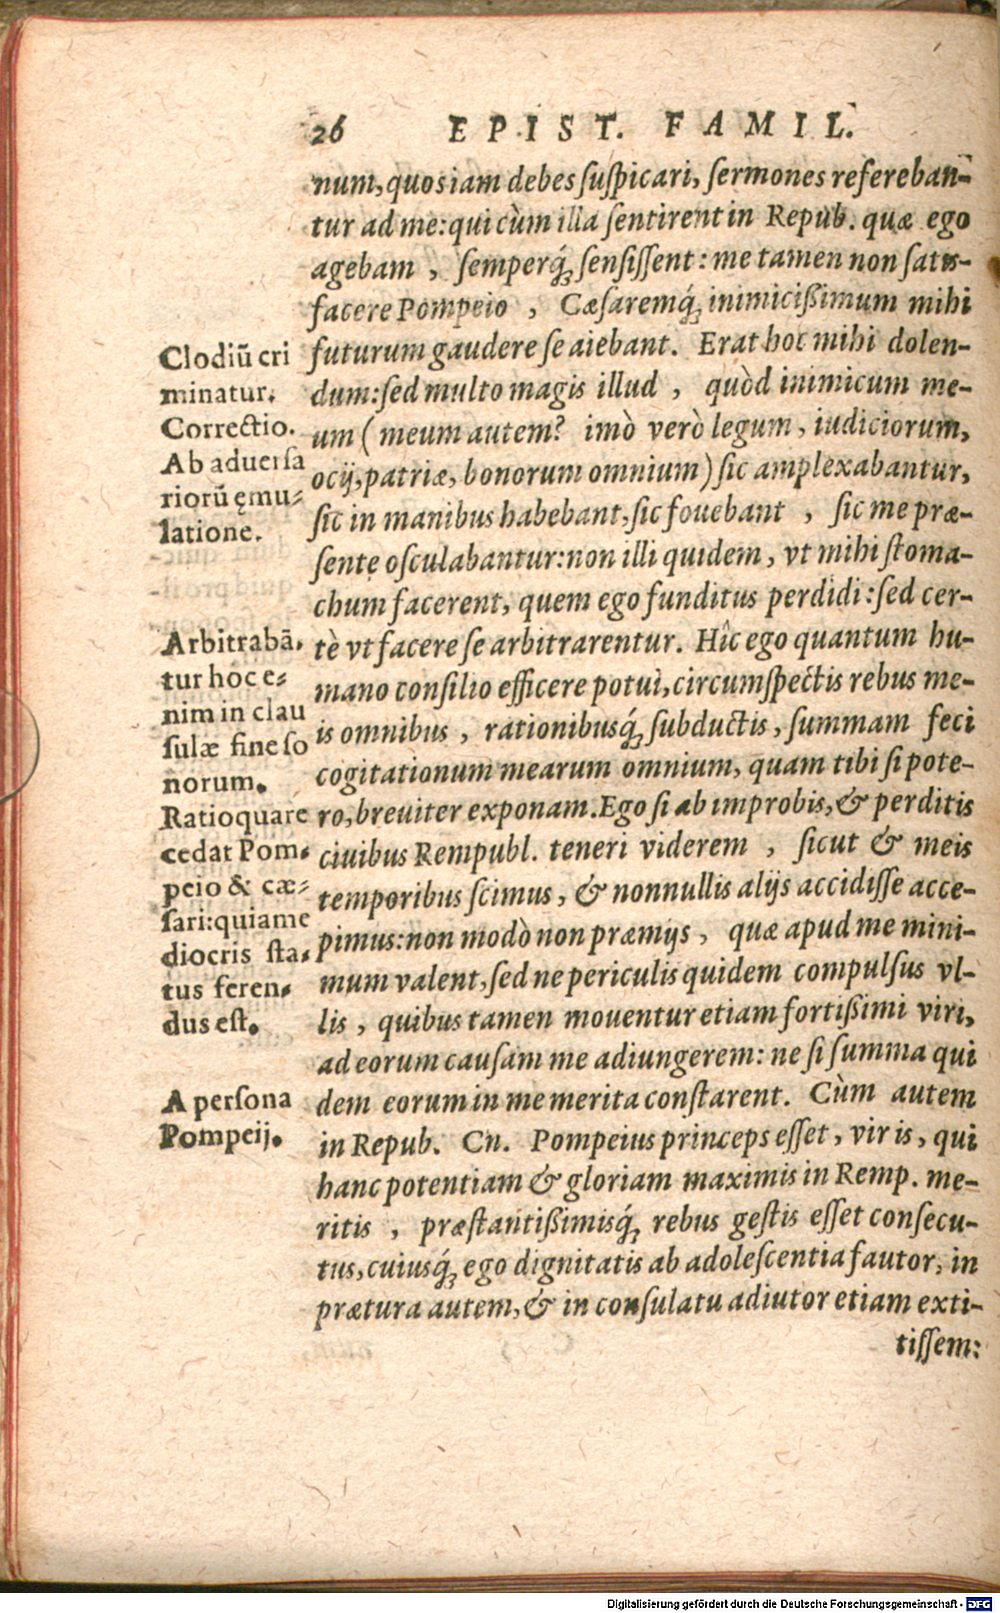 26 EPIST. FAMIL.
num, quos iam debes suspicari, sermones refereban-
tur ad me: qui cùm illa sentirent in Repub. quæ ego
agebam, semperq́; sensissent: me tamen non satis-
facere Pompeio, Cæsaremq́; inimicißimum mihi
futurum gaudere se aiebant. Erat hoc mihi dolen-
dum: sed multo magis illud, quòd inimicum me-
um (meum autem? imò verò legum, iudiciorum,
ocij, patriæ, bonorum omnium) sic amplexabantur,
sic in manibus habebant, sic fouebant, sic me præ-
sente osculabantur: non illi quidem, vt mihi stoma-
chum facerent, quem ego funditus perdidi: sed cer-
tè vt facere se arbitrarentur. Hîc ego quantum hu-
mano consilio efficere potui, circumspectis rebus me-
is omnibus, rationibusq́; subductis, summam feci
cogitationum mearum omnium, quam tibi si pote-
ro, breuiter exponam. Ego si ab improbis, & perditis
ciuibus Rempubl. teneri viderem, sicut & meis
temporibus scimus, & nonnullis alijs accidisse acce-
pimus: non modò non præmijs, quæ apud me mini-
mum valent, sed ne periculis quidem compulsus vl-
lis, quibus tamen mouentur etiam fortißimi viri,
ad eorum causam me adiungerem: ne si summa qui
dem eorum in me merita constarent. Cùm autem
in Repub. Cn. Pompeius princeps esset, vir is, qui
hanc potentiam & gloriam maximis in Remp. me-
ritis, præstantißimisq́; rebus gestis esset consecu-
tus, cuiusq́; ego dignitatis ab adolescentia fautor, in
prætura autem, & in consulatu adiutor etiam exti-
tissem:
Clodiũ cri
minatur.
Correctio.
Ab aduersa
riorũ ęmu-
latione.
Arbitrabã-
tur hoc e-
nim in clau
sulæ fine so
norum.
Ratio quare
cedat Pom-
peio & cæ-
sari: quia me
diocris sta-
tus feren-
dus est.
A persona
Pompeij.
Digitalisierung gefördert durch die Deutsche Forschungsgemeinschaft - DFG